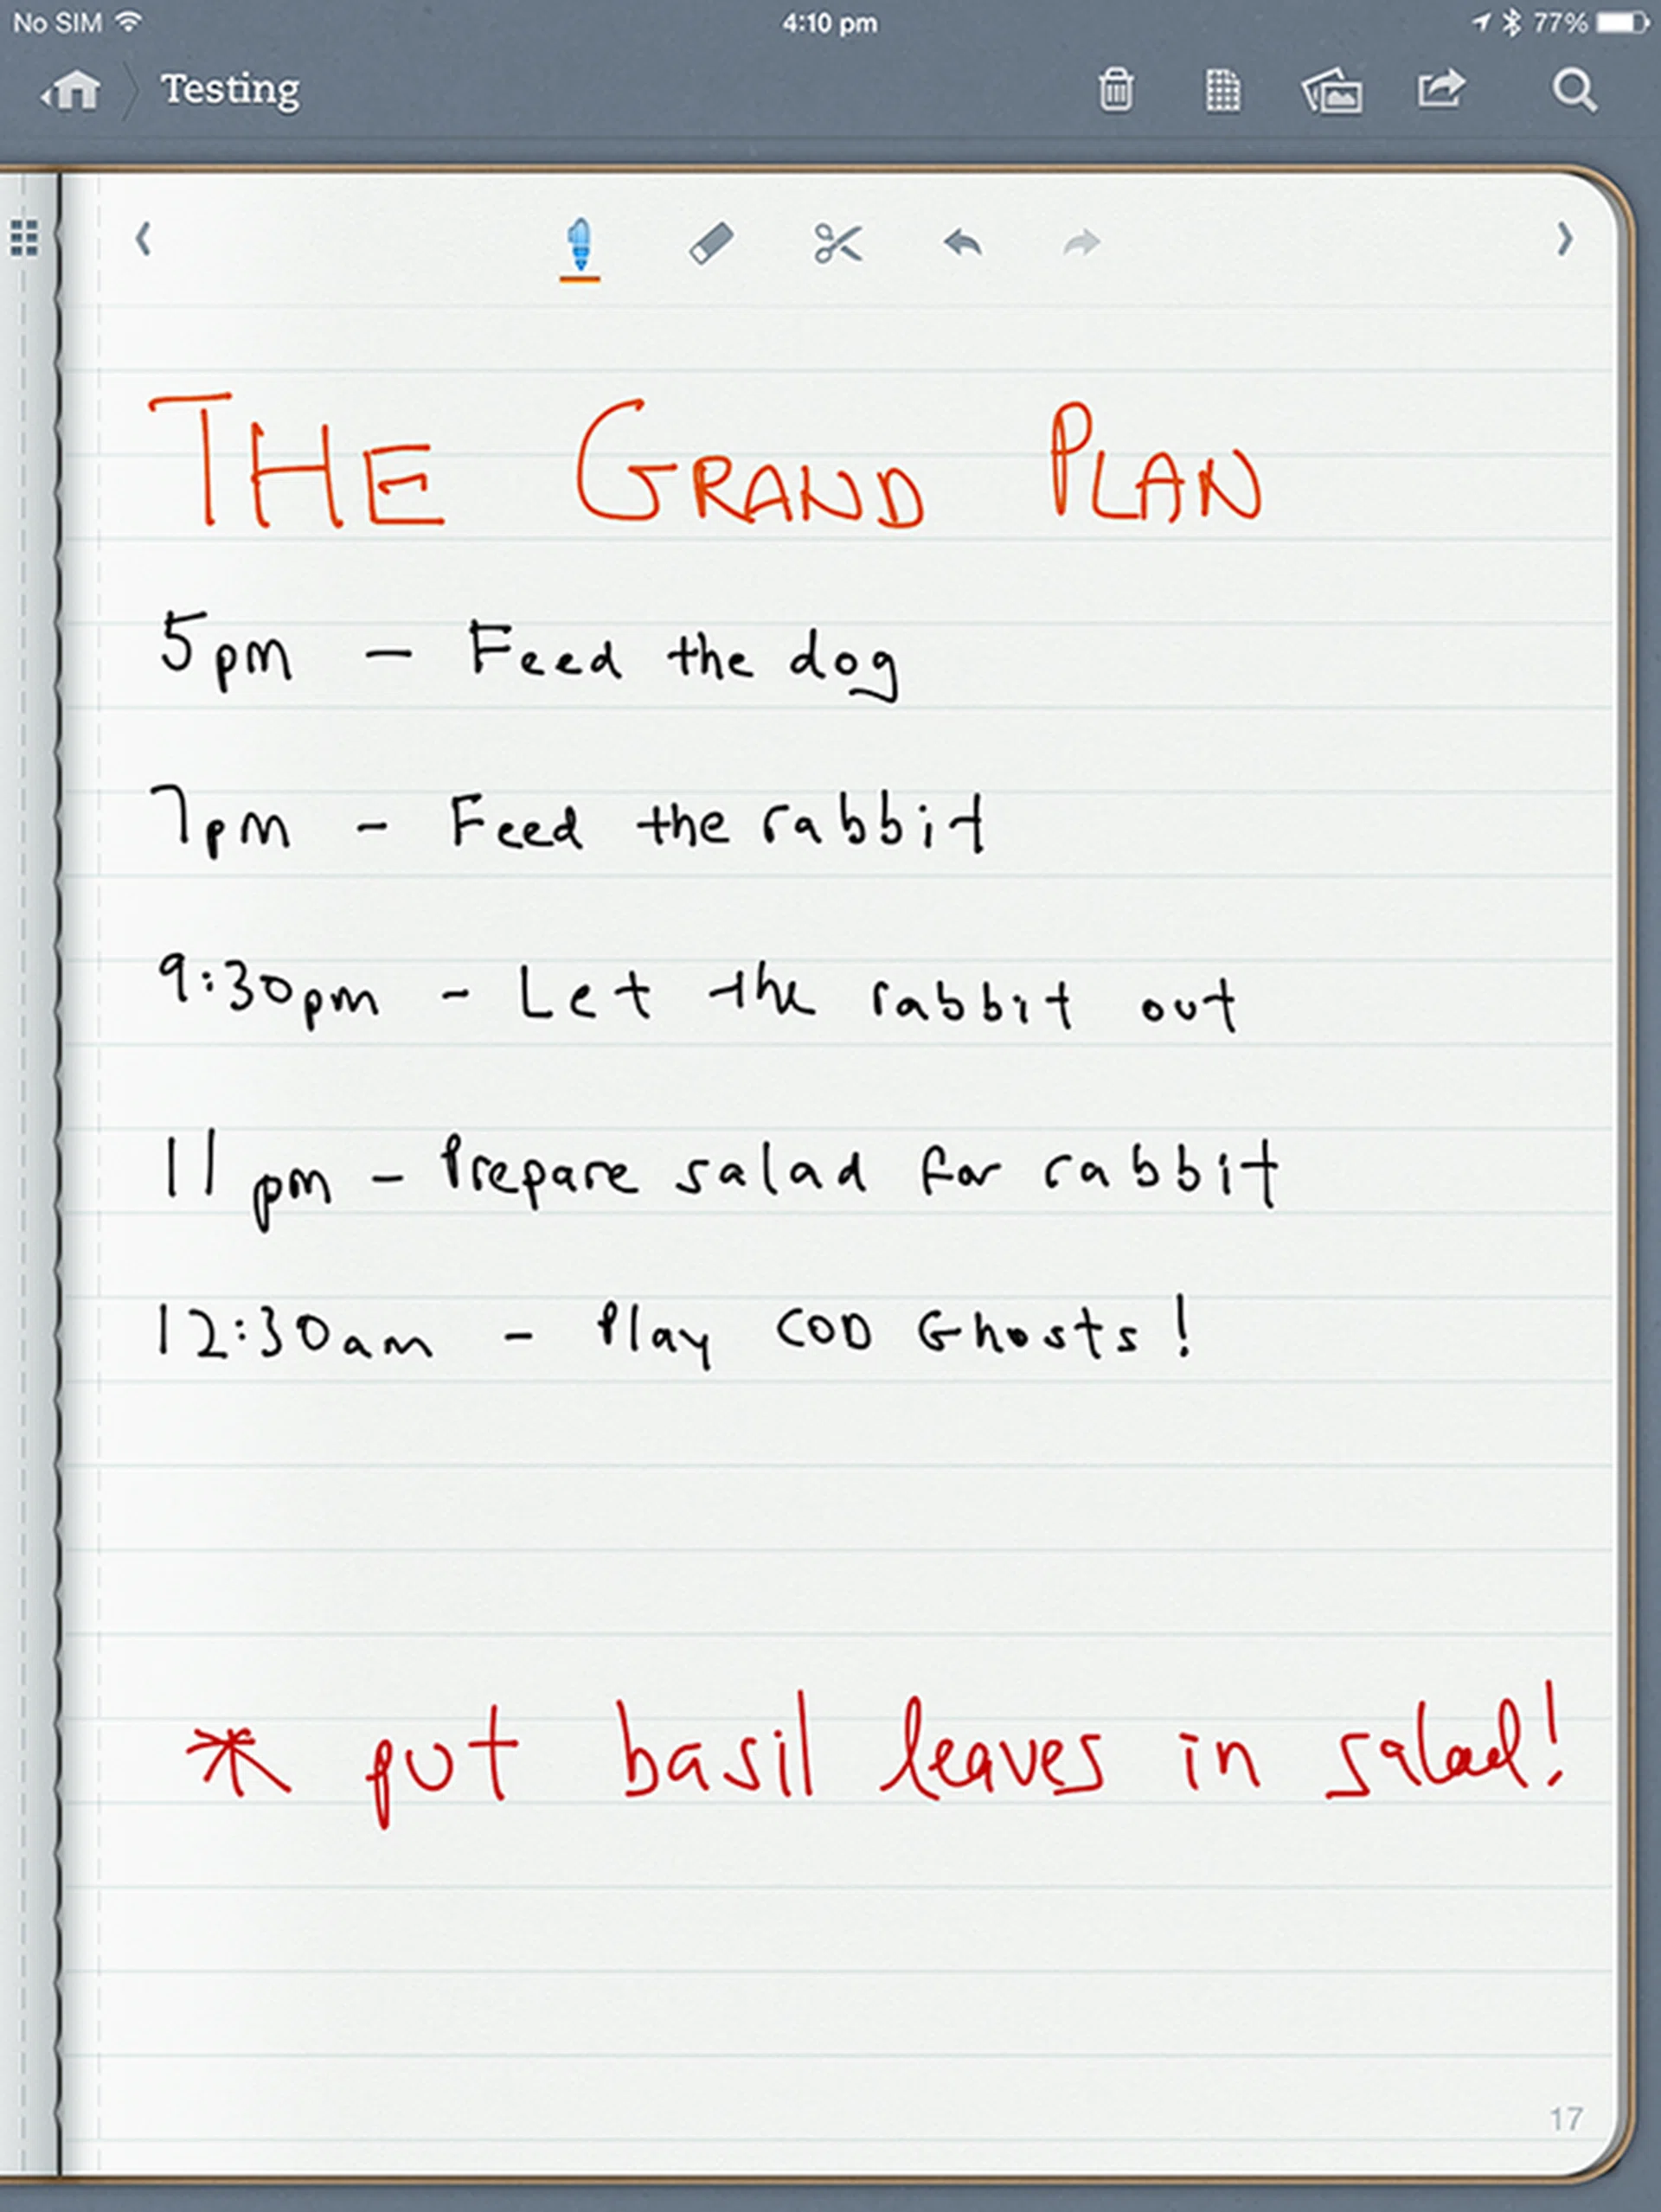 No SIM 4:10 pm 77%
Testing
THE GRAND PLAN
5pm - Feed the dog
7pm - Feed the rabbit
9:30pm - Let the rabbit out
11pm - Prepare salad for rabbit
12:30am - Play COD Ghosts!
* put basil leaves in salad!
17